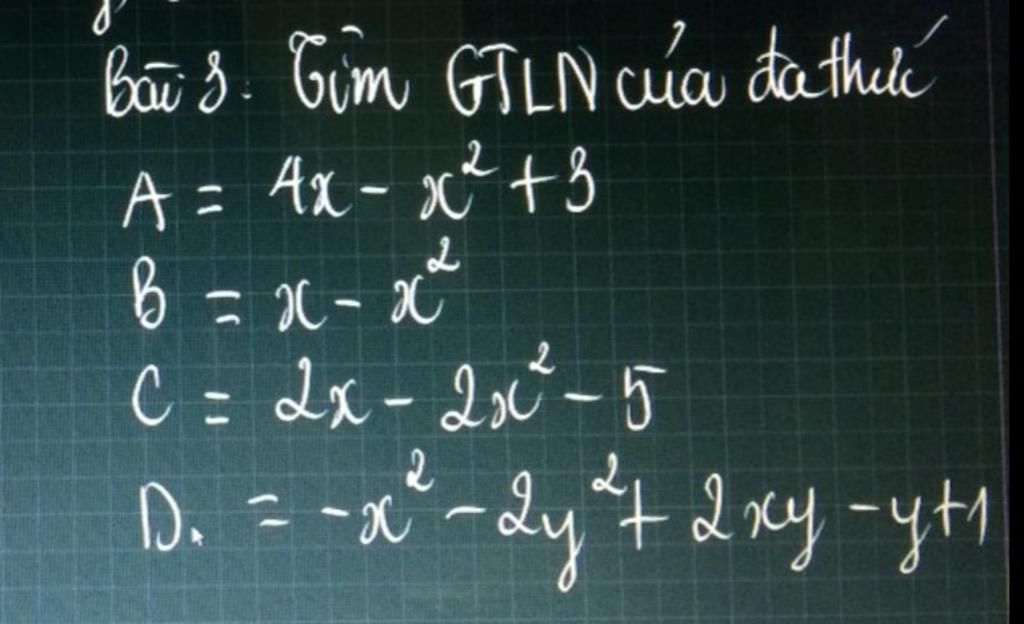 Bài 3: Tìm GTLN của đa thức
A = 4x - x² + 3
B = x - x²
C = 2x - 2x² - 5
D. = -x² - 2y² + 2xy - y + 1